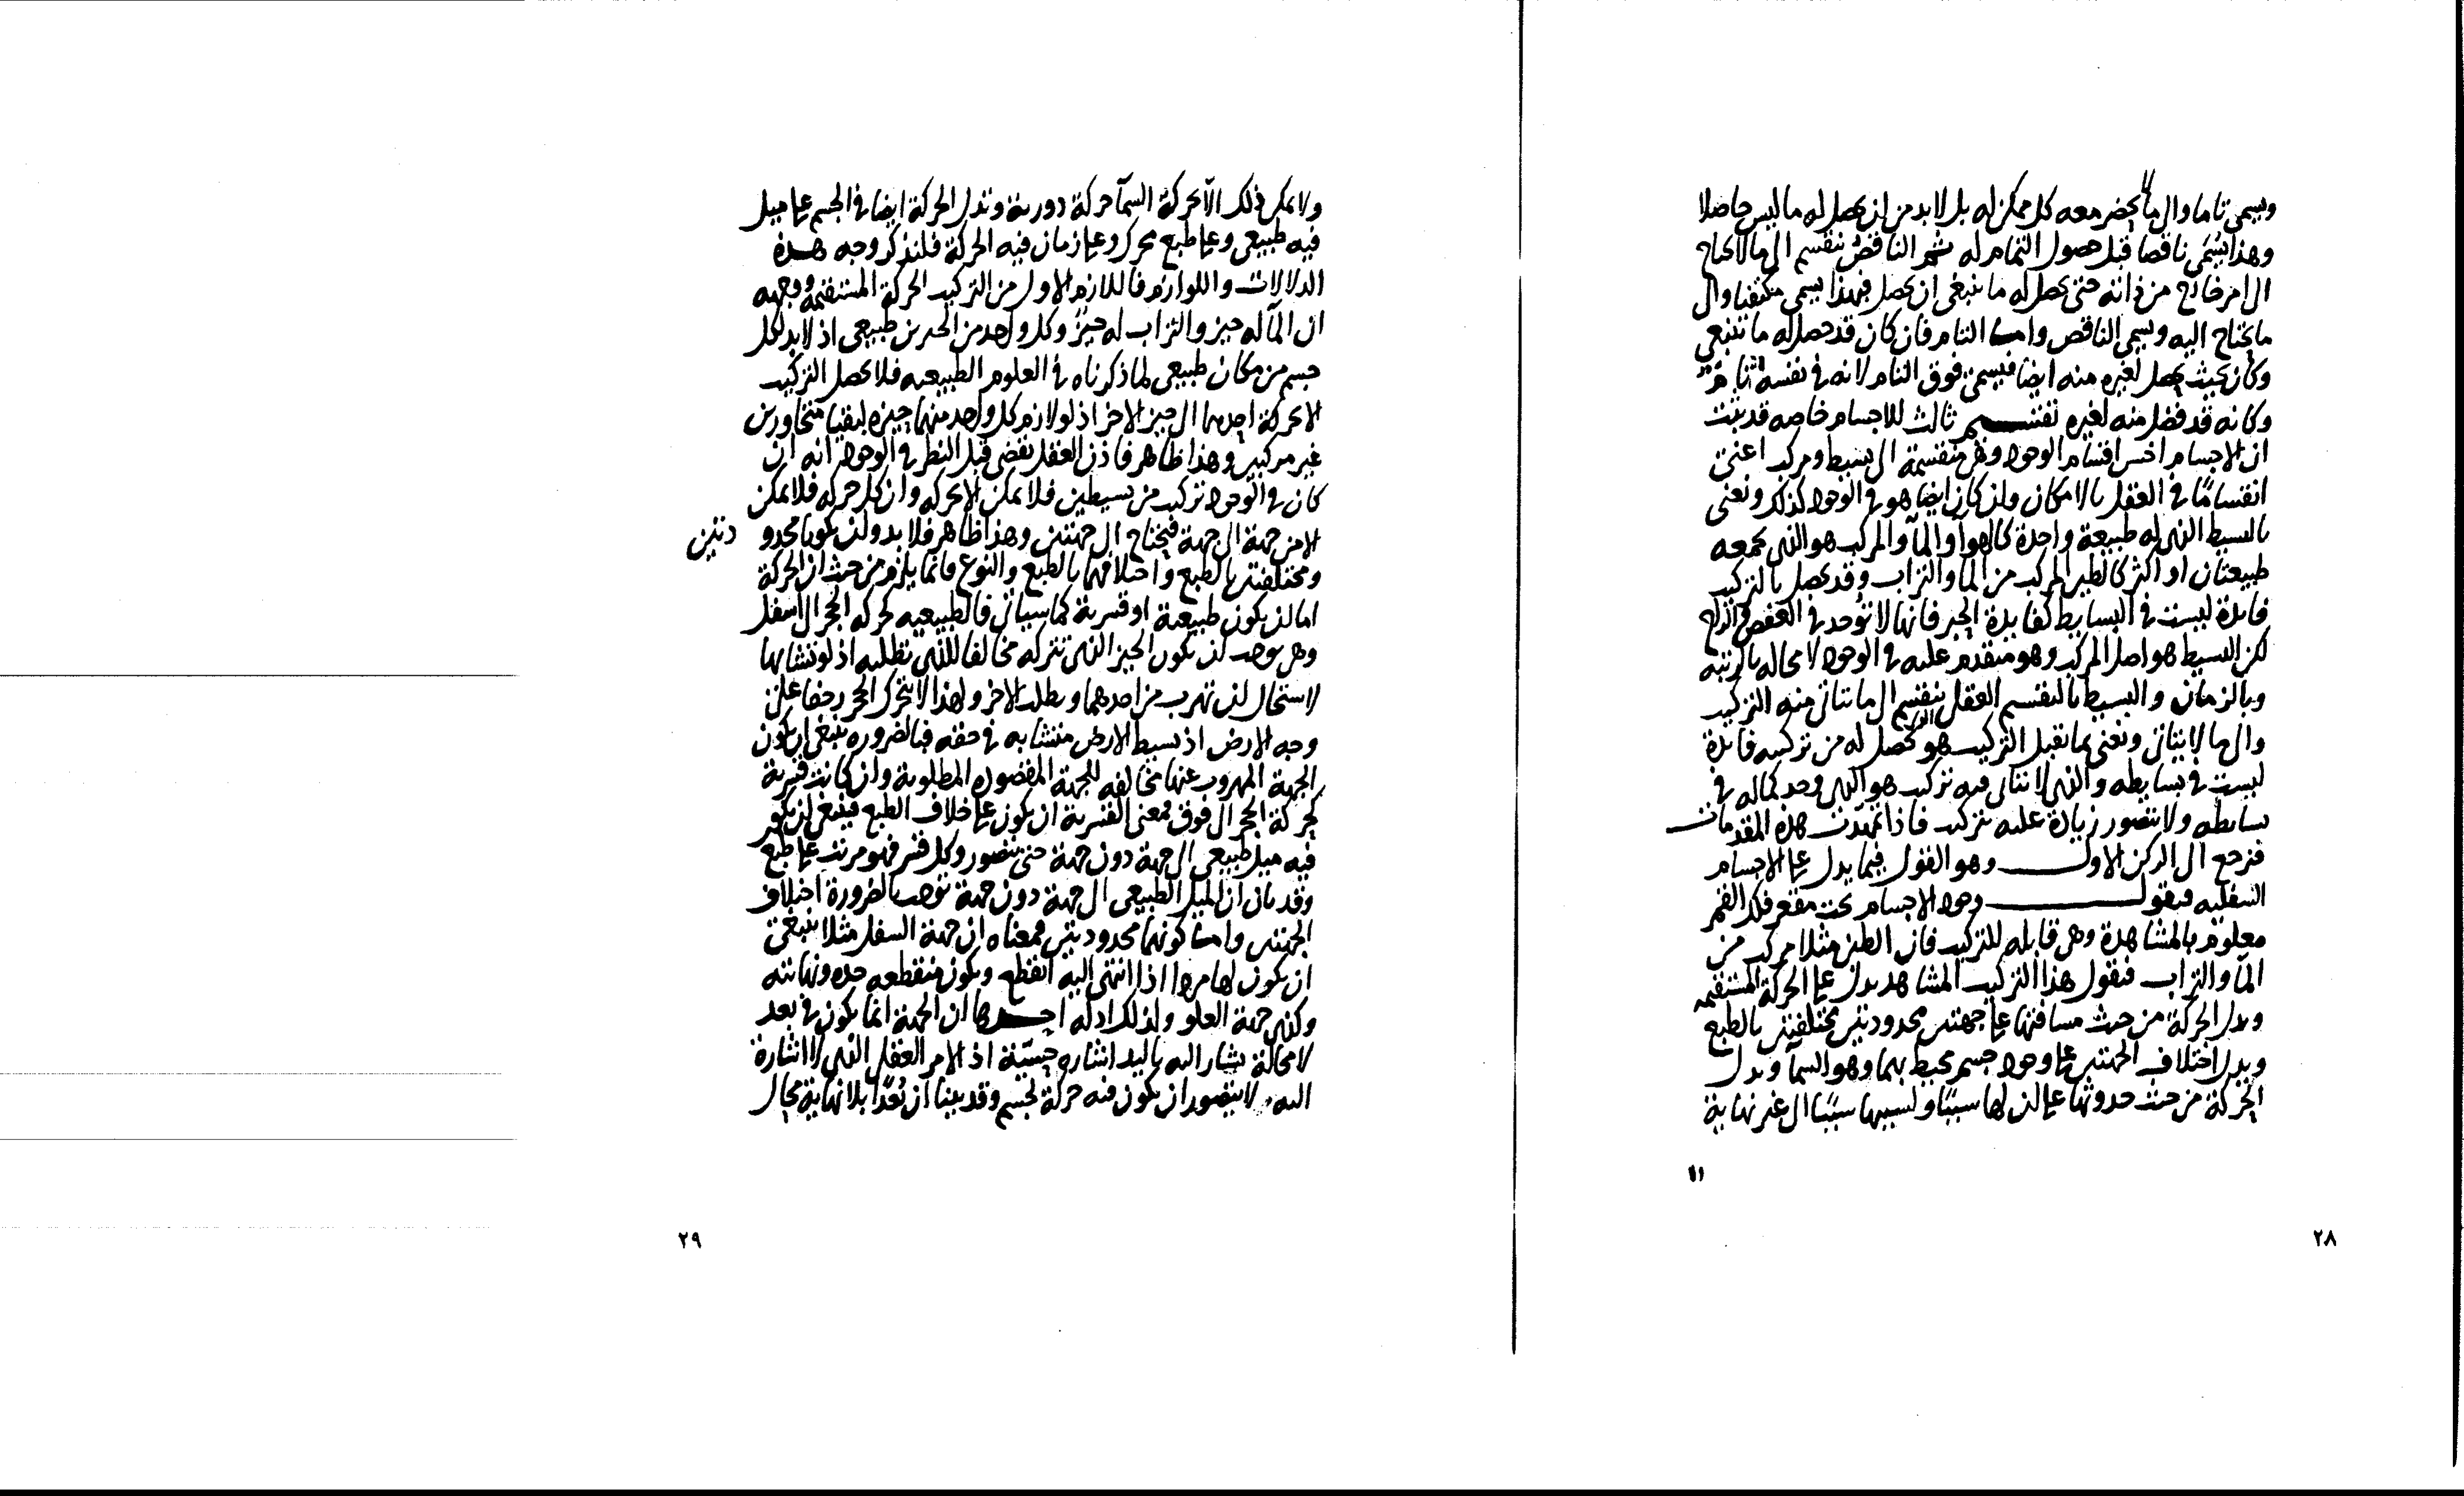 ويسمى تاما والى ما لم يحضر معه كل ممكن له بل لا بد من ان يحصل له ما ليس حاصلا
وهذا يسمى ناقصا قبل حصول التمام له ثم الناقص ينقسم الى ما لا يحتاج
الى امر خارج من ذاته حتى يحصل له ما ينبغي ان يحصل فهذا يسمى مكتفيا والى
ما يحتاج اليه ويسمى الناقص واما التام فان كان قد حصل له ما ينبغي
وكان بحيث يحصل لغيره منه ايضا فيسمى فوق التام لانه في نفسه تام
وكانه قد فضل منه لغيره تقسيم ثالث للاجسام خاصه قد بينت
ان الاجسام اخس اقسام الوجود وهي منقسمة الى بسيط ومركب اعني
انقساما في العقل بالامكان وان كان ايضا هو في الوجود كذلك ونعني
بالبسيط الذي له طبيعة واحدة كالهوآ والمآ والمركب هو الذي يجمعه
طبيعتان او اكثر كالطين المركب من المآ والتراب وقد يحصل بالتركيب
فايدة ليست في البسايط كفايدة الحبر فانها لا توجد في العفص والزاج
لكن البسيط هو اصل المركب وهو متقدم عليه في الوجود لا محاله بالرتبه
وبالزمان والبسيط بالتقسيم العقلي ينقسم الى ما يتاتى منه التركيب
والى ما لا يتاتى ونعني بما تقبل التركيب هو الذي يحصل له من تركيبه فايدة
ليست في بسايطه والذي لا يتاتى فيه تركيب هو الذي وجد كماله في
بسايطه ولا يتصور زيادة عليه بتركيب فاذا تمهدت هذه المقدمات
فنرجع الى الركن الاول وهو القول فيما يدل على الاجسام
السفليه فنقول وجود الاجسام تحت مقعر فلك القمر
معلوم بالمشاهدة وهي قابله للتركيب فان الطين مثلا مركب من
المآ والتراب فنقول هذا التركيب المشاهد يدل على الحركة المستقيمه
ويدل الحركة من حيث مسافتها على جهتين محدودتين مختلفتين بالطبع
ويدل اختلاف الجهتين على وجود جسم محيط بهما وهو السمآ وتدل
الحركة من حيث حدوثها على ان لها سببا ولسببها سببا الى غير نهاية
١١
٢٨
ولا يمكن ذلك الا بحركة السمآ حركة دورية وتدل الحركة ايضا في الجسم على ميل
فيه طبيعي وعلى طبع محرك وعلى زمان فيه الحركة فلنذكر وجه هذه
الدلالات واللوازم فاللازم الاول من التركيب الحركة المستقيمة ووجهه
ان المآ له حيز والتراب له حيز وكل واحد من الحيزين طبيعي اذ لا بد لكل
جسم من مكان طبيعي لما ذكرناه في العلوم الطبيعيه فلا يحصل التركيب
الا بحركة احدهما الى حيز الاخر اذ لو لازم كل واحد منهما حيزه لبقيا متجاورين
غير مركبين وهذا ظاهر فاذن العقل يقضي قبل النظر في الوجود انه ان
كان في الوجود تركيب من بسيطين فلا يمكن الا بحركه وان كل حركه فلا يمكن
الا من جهة الى جهة فيحتاج الى جهتين وهذا ظاهر فلا بد وان يكونا محدو دتين
ومختلفتين بالطبع واختلافهما بالطبع والنوع فانما يلزم من حيث ان الحركة
اما ان يكون طبيعية او قسرية كما سياتي فالطبيعيه كحركه الحجر الى اسفل
وهي توجب ان يكون الحيز الذي تتركه مخالفا للذي تطلبه اذ لو تشابها
لاستحال ان تهرب من احدهما ويطلب الاخر ولهذا لا يتحرك الحجر زحفا على
وجه الارض اذ بسيط الارض متشابه في حقه فبالضروره ينبغي ان يكون
الجهة المهروب عنها مخالفه للجهة المقصوده المطلوبة وان كانت قسرية
كحركة الحجر الى فوق فمعنى القسرية ان يكون على خلاف الطبع فينبغي ان يكون
فيه ميل طبيعي الى جهة دون جهة حتى يتصور وكل قسر فهو مرتب على طبع
وقد بان ان الميل الطبيعي الى جهة دون جهة توجب بالضرورة اختلاف
الجهتين واما كونهما محدودتين فمعناه ان جهة السفل مثلا ينبغي
ان يكون لها مرد اذا انتهى اليه انقطع ويكون منقطعه حده ونهايته
وكذى جهة العلو ولذلك ادله احدها ان الجهة انما يكون في بعد
لا محالة يشار اليه باليد اشاره حسية اذ الامر العقلي الذي لا اشارة
اليه لا يتصور ان يكون فيه حركة لجسم وقد بينا ان بعدا بلا نهاية محال
٢٩